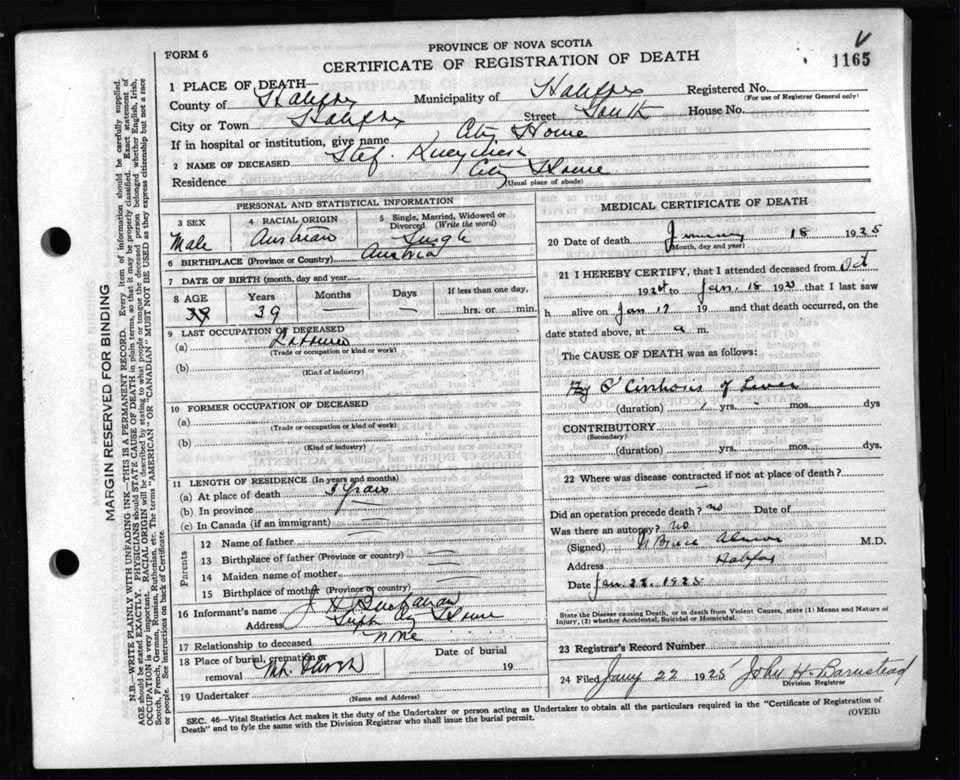 FORM 6
PROVINCE OF NOVA SCOTIA
CERTIFICATE OF REGISTRATION OF DEATH
1165
1 PLACE OF DEATH—
County of Halifax Municipality of Halifax Registered No.
(For use of Registrar General only)
City or Town Halifax Street South House No.
If in hospital or institution, give name City Home
2 NAME OF DECEASED Stef.
Residence City Home
(Usual place of abode)
PERSONAL AND STATISTICAL INFORMATION
3 SEX Male
4 RACIAL ORIGIN Austrian
5 Single, Married, Widowed or Divorced (Write the word) Single
6 BIRTHPLACE (Province or Country) Austria
7 DATE OF BIRTH (month, day and year)
8 AGE Years Months Days If less than one day,
39 39 — — hrs. or min.
9 LAST OCCUPATION OF DECEASED
(a) Labourer
(Trade or occupation or kind of work)
(b)
(Kind of industry)
10 FORMER OCCUPATION OF DECEASED
(a)
(Trade or occupation or kind of work)
(b)
(Kind of industry)
11 LENGTH OF RESIDENCE (In years and months)
(a) At place of death years
(b) In province
(c) In Canada (if an immigrant)
Parents
12 Name of father
13 Birthplace of father (Province or country)
14 Maiden name of mother
15 Birthplace of mother (Province or country)
16 Informant's name J H Buchanan
Address Supt City Home
17 Relationship to deceased none
18 Place of burial, cremation or removal Date of burial
19
19 Undertaker
(Name and Address)
MEDICAL CERTIFICATE OF DEATH
20 Date of death January 18 1925
(Month, day and year)
21 I HEREBY CERTIFY, that I attended deceased from Oct
1924 to Jan. 18 1925 that I last saw
h alive on Jan 17 19 and that death occurred, on the
date stated above, at a m.
The CAUSE OF DEATH was as follows:
Cirrhosis of Liver
(duration) 1 yrs. mos. dys
CONTRIBUTORY
(Secondary)
(duration) yrs. mos. dys.
22 Where was disease contracted if not at place of death?
Did an operation precede death? no Date of
Was there an autopsy? no
(Signed) Bruce Almon M.D.
Address Halifax
Date Jan. 22. 1925
State the Disease causing Death, or in death from Violent Causes, state (1) Means and Nature of
Injury, (2) whether Accidental, Suicidal or Homicidal.
23 Registrar's Record Number
24 Filed Jany 22 1925 John H. Barnstead
Division Registrar
SEC. 46—Vital Statistics Act makes it the duty of the Undertaker or person acting as Undertaker to obtain all the particulars required in the "Certificate of Registration of
Death" and to fyle the same with the Division Registrar who shall issue the burial permit.
(OVER)
MARGIN RESERVED FOR BINDING
N.B.—WRITE PLAINLY WITH UNFADING INK—THIS IS A PERMANENT RECORD. Every item of information should be carefully supplied.
AGE should be stated EXACTLY. PHYSICIANS should STATE CAUSE OF DEATH in plain terms, so that it may be properly classified. Exact statement of
OCCUPATION is very important. RACIAL ORIGIN will be described by stating to what people or tongue the deceased person belonged whether English, Irish,
Scotch, French, German, Russian, Ruthenian, etc. The terms "AMERICAN" OR "CANADIAN" MUST NOT BE USED as they express citizenship but not a race
or people. See instructions on back of Certificate